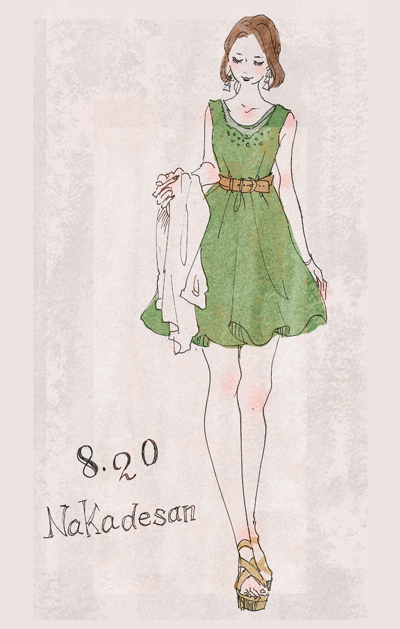 8.20
NaKadesan